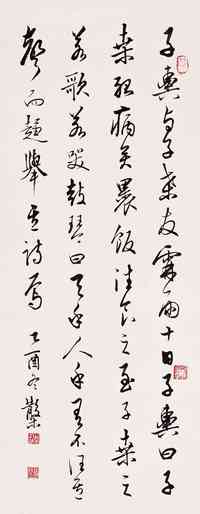 子輿与子桑友霖雨十日子輿曰子
桑殆病矣裹飯往食之至子桑之
若歌若哭鼓琴曰天乎人乎有不任其
聲而趨舉其詩焉 乙酉冬